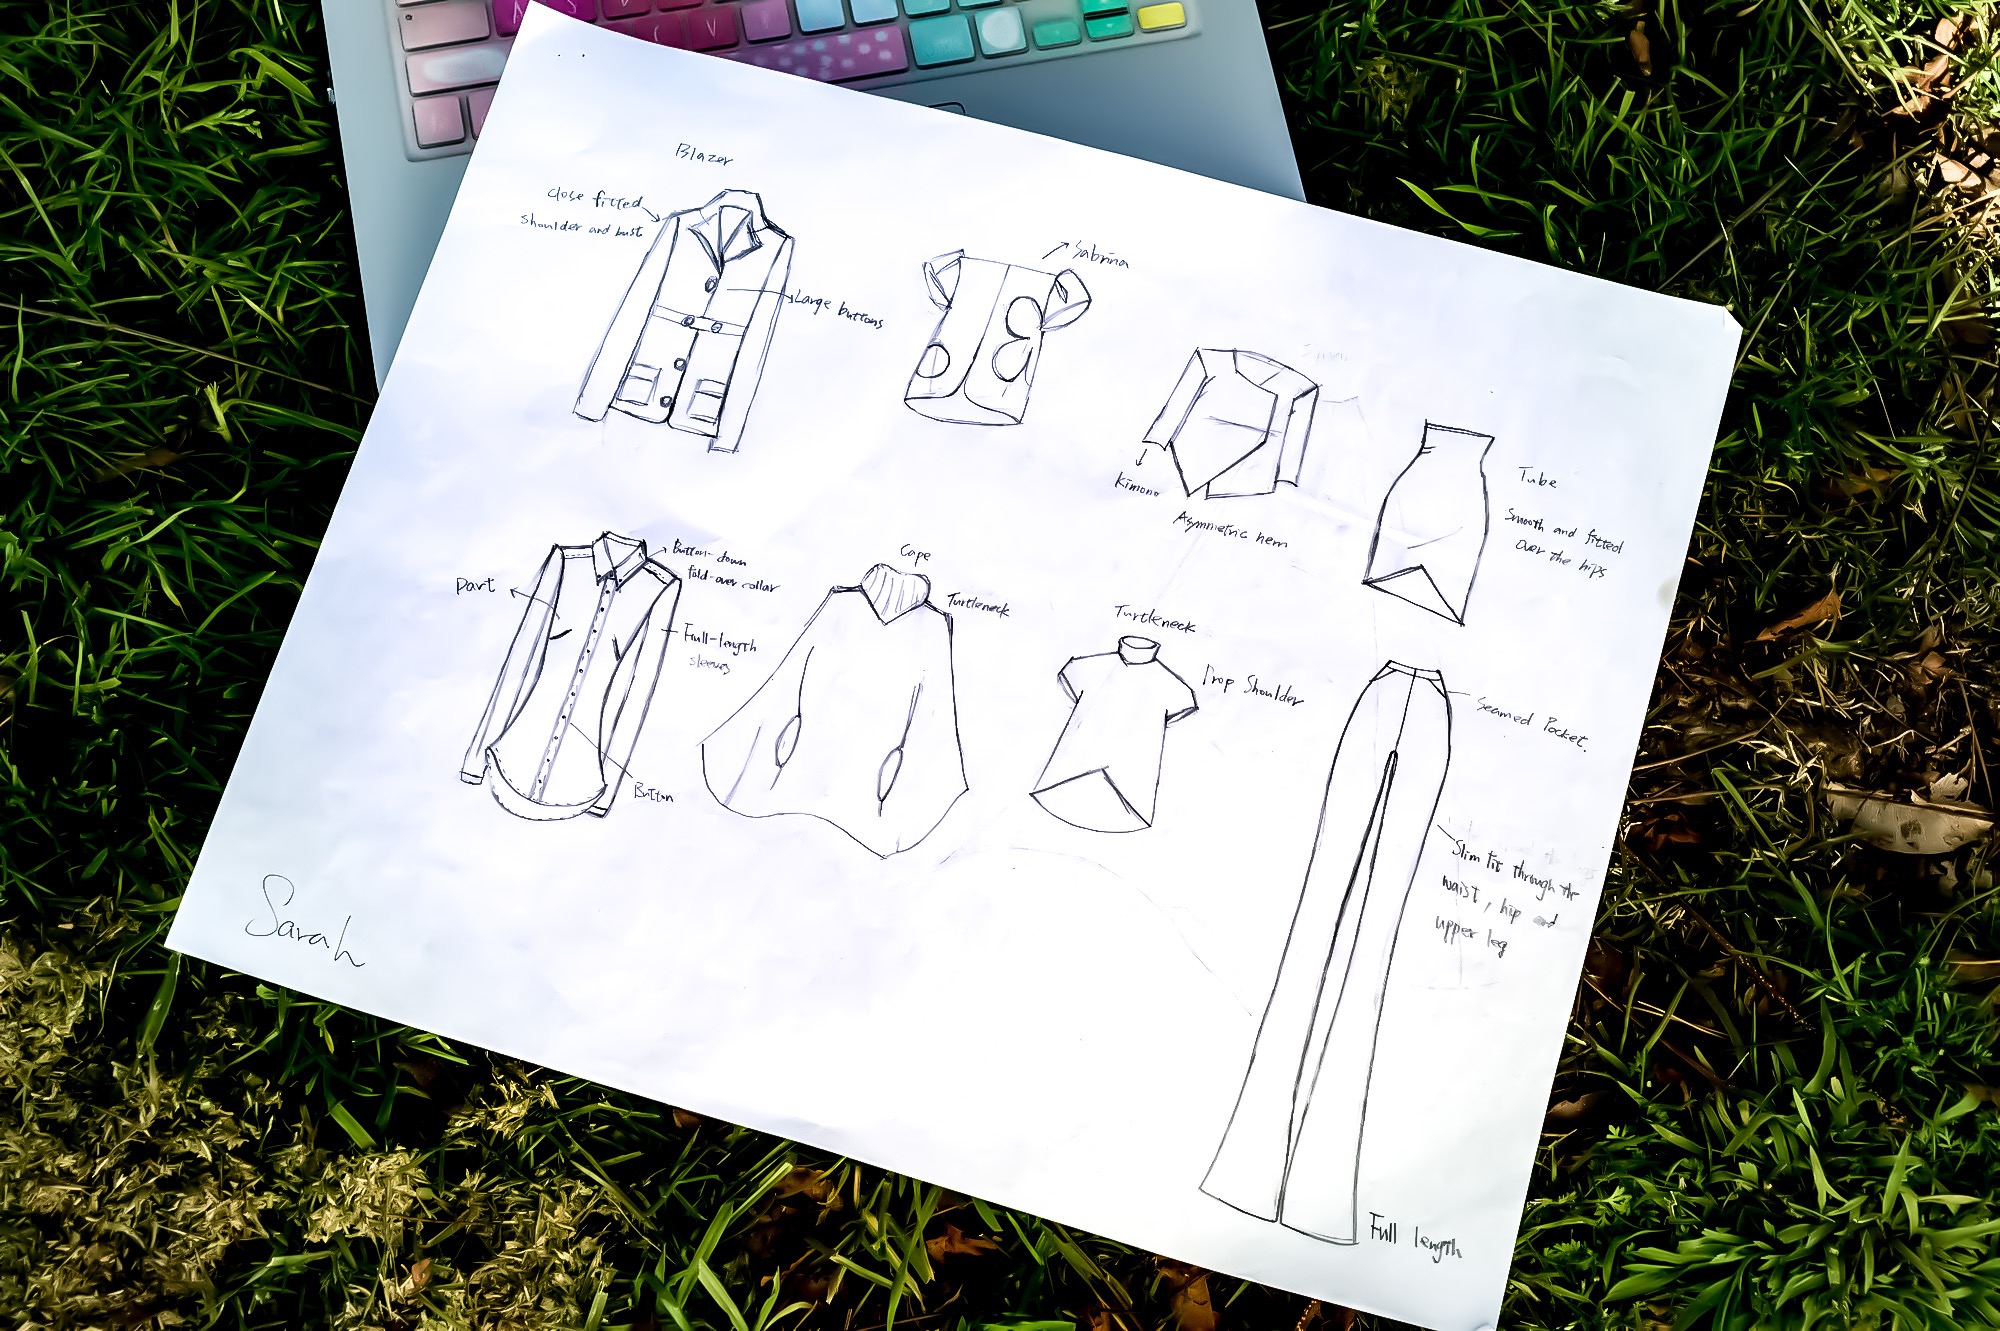 Blazer
close fitted
shoulder and bust
Large buttons
Sabrina
Kimono
Asymmetric hem
Tube
Smooth and fitted
over the hips
Button-down
fold-over collar
part
Full-length
sleeves
Button
Cape
Turtleneck
Turtleneck
Drop Shoulder
Seamed Pocket.
Slim fit through the
waist, hip and
upper leg
Full length
Sarah